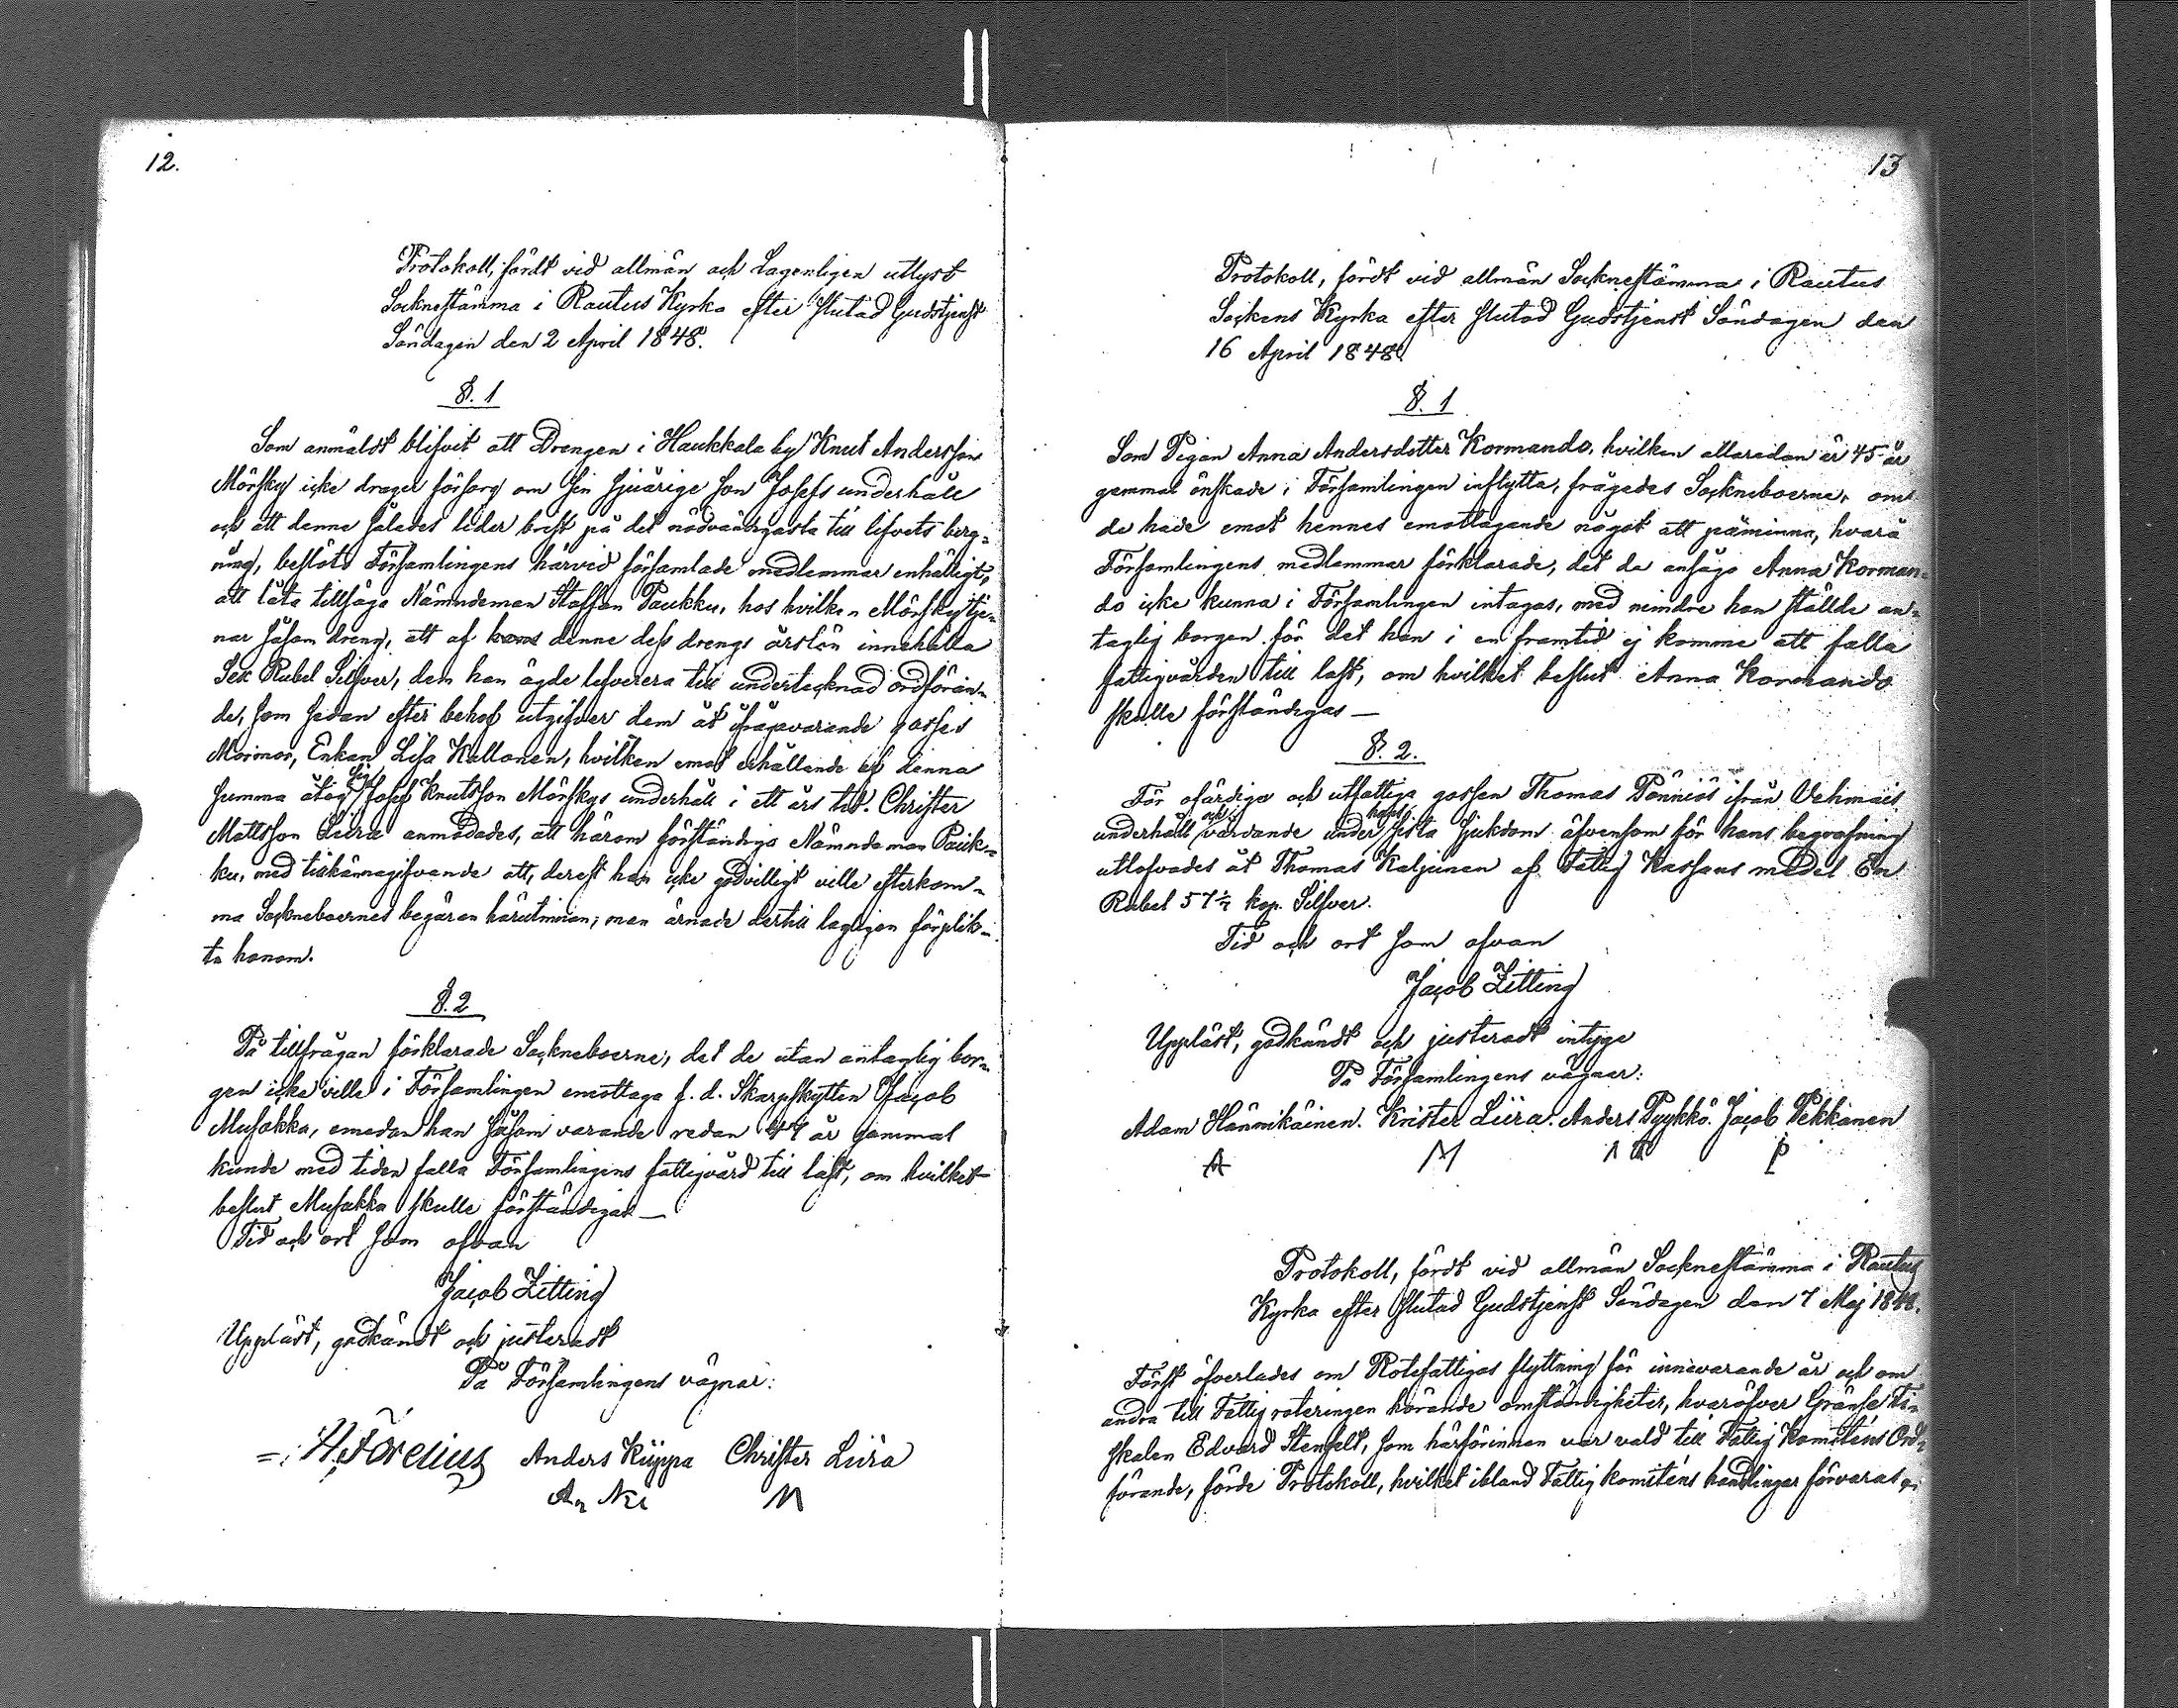 12.
Protokoll, fördt vid allmän och Lagenligen utlyst
Sockneståmma i Rautus Kyrka efter slutad Gudstjenst
Söndagen den 2 April 1848.
§. 1
Som anmäldt blifvit att Drengen i Haukkala by Knut Andersson
Mörsky icke drager försorg om sin sjuårige son Josefs underhåll
och att denne således lider brist på det nödvändigaste till lifvets berg-
ning, beslöto Församlingens härvid församlade medlemmar enhälligt,
att låta tillsäga Nämndeman Staffan Paukku, hos hvilken Mörsky tje-
nar såsom dreng, att af hans denne dess drengs årslön innehålla
Sex Rubel Silfver, dem han ägde lefverera till undertecknad ordföran-
de, som sedan efter behof utgifver dem åt ifrågavarande gosses
Mormor, Enkan Lisa Kallonen, hvilken emot erhållande af denna
summa åtog sig Josef Knutsson Mörskys underhåll i ett års tid. Christer
Mattsson Liira anmodades, att härom förständiga Nämndeman Pauk-
ku, med tillkännagifvande att, derest han icke godvilligt ville efterkom-
ma Sockneboernes begäran härutinnan, man ärnade dertill lagligen förplik-
ta honom.
§. 2
På tillfrågan förklarade Sockneboerne, det de utan antaglig bor-
gen icke ville i Församlingen emottaga f. d. Skarpskytten Jacob
Musakka, emedan han såsom varande redan 47 år gammal
kunde med tiden falla Församlingens fattigvård till last, om hvilket
beslut Musakka skulle förständigas —
Tid och ort som ofvan
Jacob Zitting
Uppläst, godkändt och justeradt
På Församlingens vägnar:
H. Forelius Anders Kiippa Christer Liira
M
13
Protokoll, fördt vid allmän Socknestämma i Rautus
Sockens Kyrka efter slutad Gudstjenst Söndagen den
16 April 1848.
§. 1
Som Pigan Anna Andersdotter Kormando, hvilken allaredan är 45 år
gammal önskade i Församlingen inflytta, frågades Sockneboerne, om
de hade emot hennes emottagande något att påminna, hvarå
Församlingens medlemmar förklarade, det de ansågo Anna Korman-
do icke kunna i Församlingen intagas, med mindre hon ställde an-
taglig borgen för det hon i en framtid ej komme att falla
fattigvården till last, om hvilket beslut Anna Kormando
skulle förständigas —
§. 2.
För ofärdiga och utfattiga gossen Thomas Pönniös ifrån Vehmais
underhåll och vårdande under hans sista sjukdom äfvensom för hans begrafning
utlofvades åt Thomas Kaljunen af Fattig Kassans medel En
Rubel 57 1/2 kop. Silfver.
Tid och ort som ofvan
Jacob Zitting
Uppläst, godkändt och justeradt intyga
På Församlingens vägnar:
Adam Hännikäinen. Krister Liira. Anders Pyykkö. Jacob Pekkanen
A M P
Protokoll, fördt vid allmän Socknestämma i Rautus
Kyrka efter slutad Gudstjenst Söndagen den 7 Maj 1848.
Först öfverlades om Rotefattigas flyttning för innevarande år och om
andra till Fattigroteringen hörande omständigheter, hvaröfver Gränse Fi-
skalen Edvard Stenfelt, som härförinnan var vald till Fattig Komiténs Ord-
förande, förde Protokoll, hvilket ibland Fattig komiténs handlingar förvaras